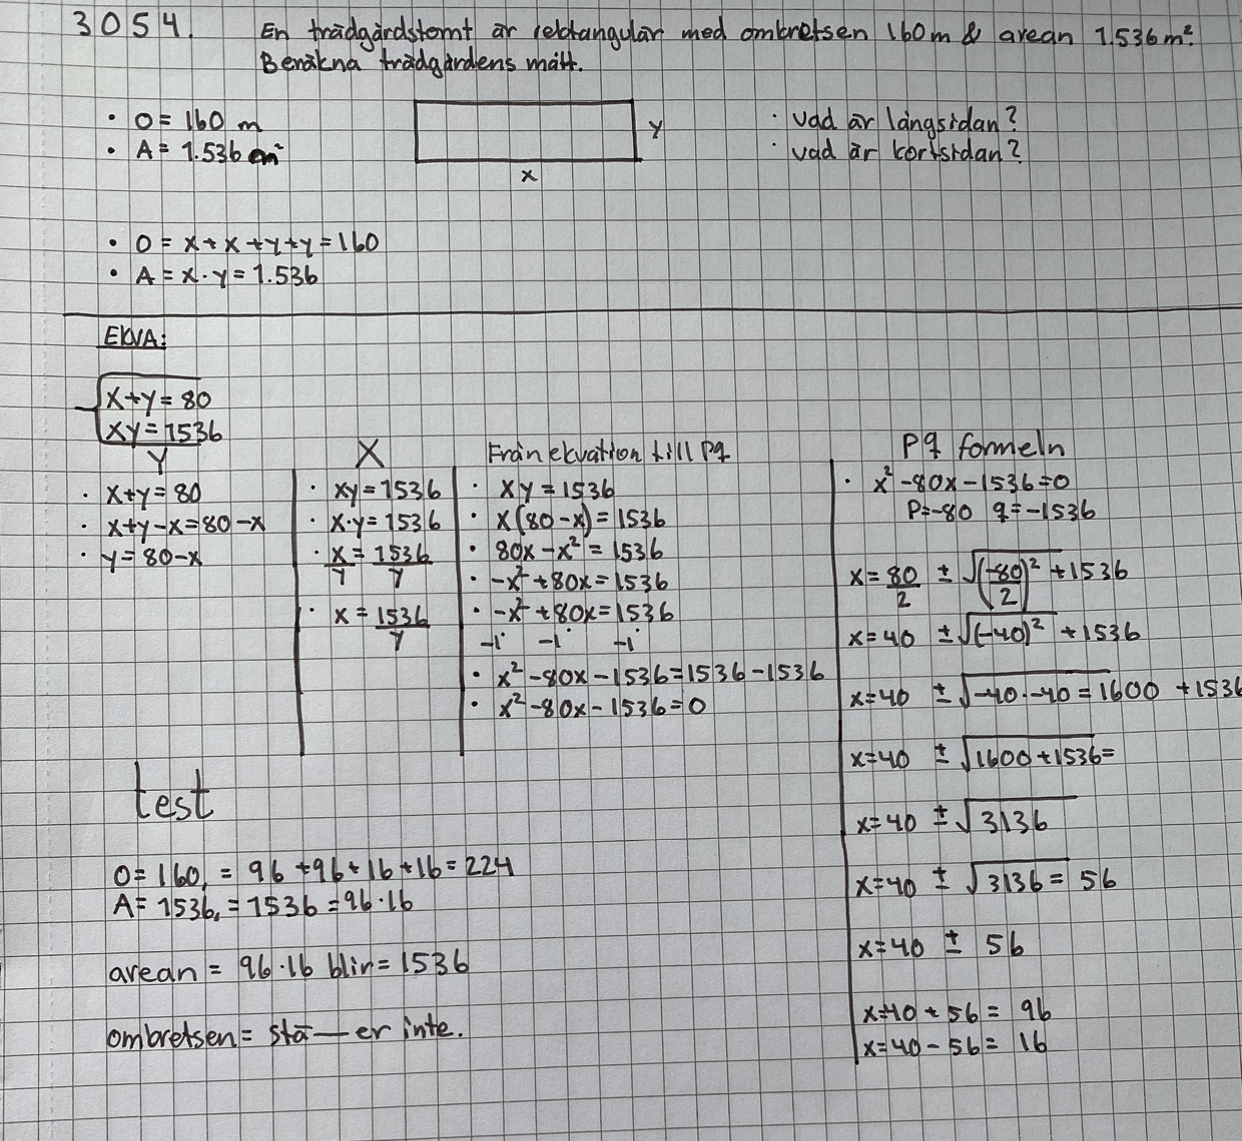 3054. En trädgårdstomt är rektangulär med ombretsen 160m & arean 1.536m².
Beräkna trädgårdens mått.
• O = 160 m
• A = 1.536 m²
y
x
· vad är långsidan?
· vad är kortsidan?
• O = x + x + y + y = 160
• A = x · y = 1.536
EKVA:
x+y = 80
xy = 1536
Y
· x+y = 80
· x+y-x = 80-x
· y = 80-x
X
· xy = 1536
· x·y = 1536
· x/y = 1536/y
· x = 1536/y
Från ekvation till pq
· xy = 1536
· x(80-x) = 1536
· 80x - x² = 1536
· -x² + 80x = 1536
· -x² + 80x = 1536
-1 -1 -1
· x² - 80x - 1536 = 1536 - 1536
· x² - 80x - 1536 = 0
Pq formeln
· x² - 80x - 1536 = 0
P = -80 q = -1536
x = 80/2 ± √(-80/2)² + 1536
x = 40 ± √(-40)² + 1536
x = 40 ± √-40·-40 = 1600 + 1536
x = 40 ± √1600 + 1536 =
x = 40 ± √3136
x = 40 ± √3136 = 56
x = 40 ± 56
x = 40 + 56 = 96
x = 40 - 56 = 16
test
O = 160, = 96 + 96 + 16 + 16 = 224
A = 1536, = 1536 = 96 · 16
arean = 96 · 16 blir = 1536
ombretsen = stä—er inte.